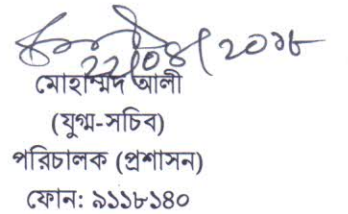 ২২/০৪/২০১৮
মোহাম্মদ আলী
(যুগ্ম-সচিব)
পরিচালক (প্রশাসন)
ফোন: ৯১১৮১৪০